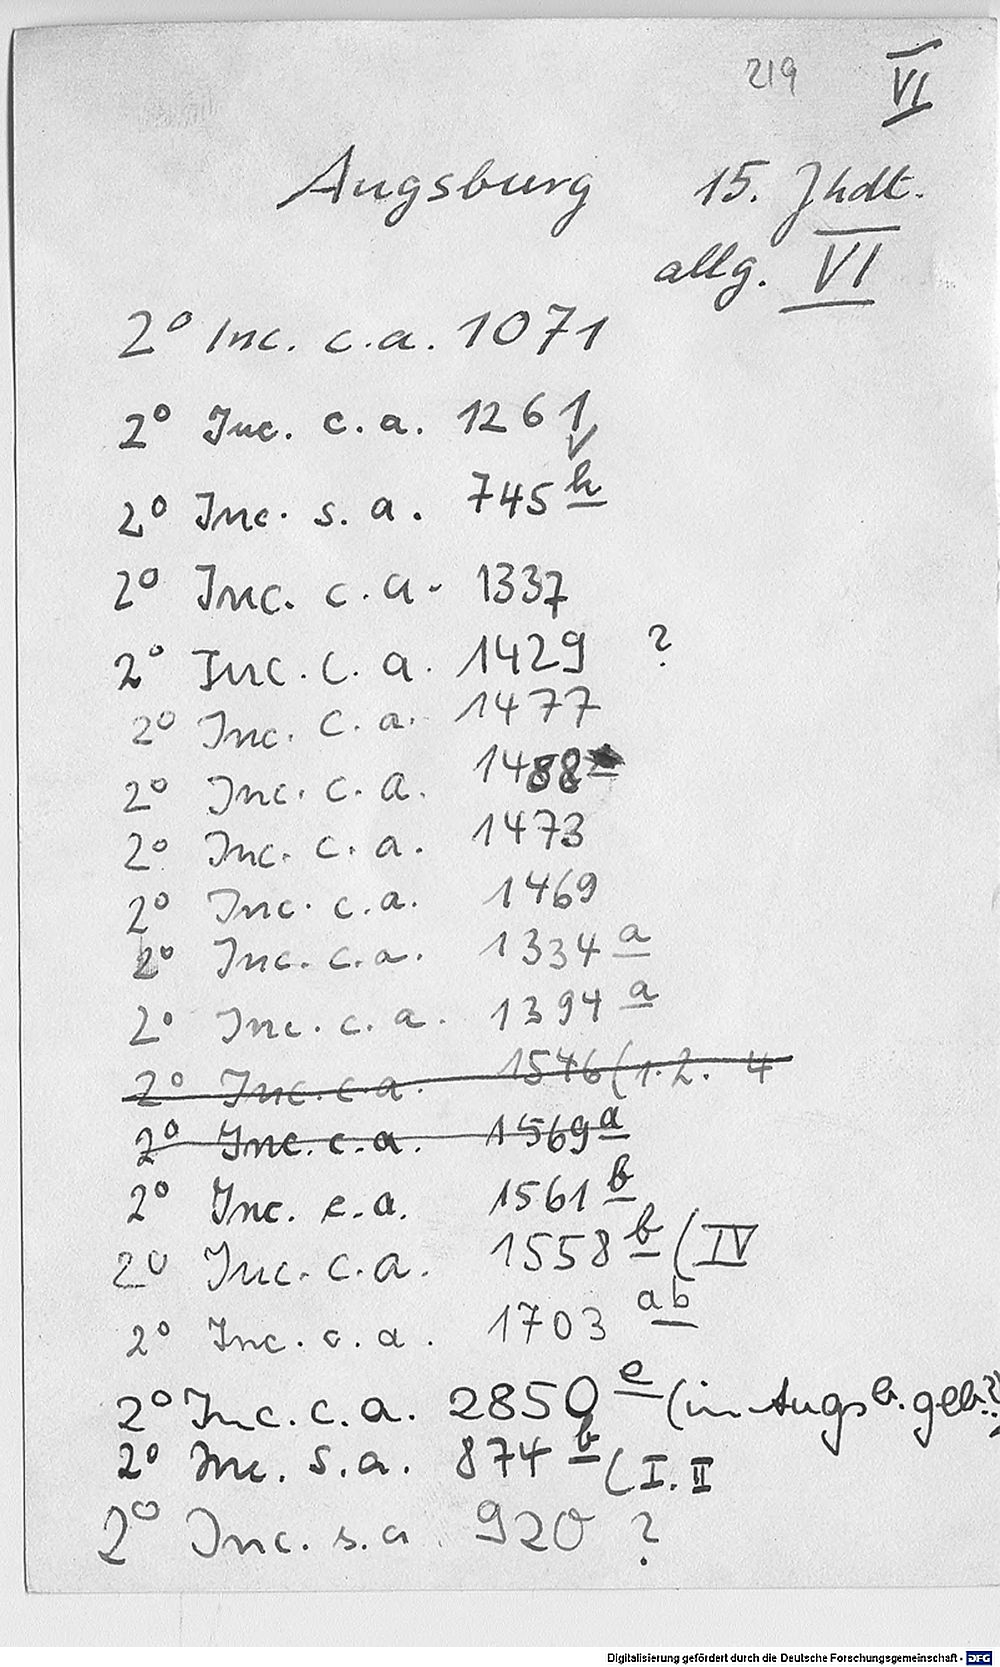 219 VI
Augsburg 15. Jhdt.
allg. VI
2° Inc. c.a. 1071
2° Inc. c.a. 1261
2° Inc. s.a. 745 h
2° Inc. c.a. 1337
2° Inc. c.a. 1429 ?
2° Inc. c.a. 1477
2° Inc. c.a. 1488
2° Inc. c.a. 1473
2° Inc. c.a. 1469
2° Inc. c.a. 1334 a
2° Inc. c.a. 1394 a
2° Inc. c.a. 1546 (1.2. 4
2° Inc. c.a. 1569 a
2° Inc. c.a. 1561 b
2° Inc. c.a. 1558 b (IV
2° Inc. c.a. 1703 ab
2° Inc. c.a. 2850 e (in Augsb. geb.?)
2° Inc. s.a. 874 b (I. II
2° Inc. s.a. 920 ?
Digitalisierung gefördert durch die Deutsche Forschungsgemeinschaft - DFG